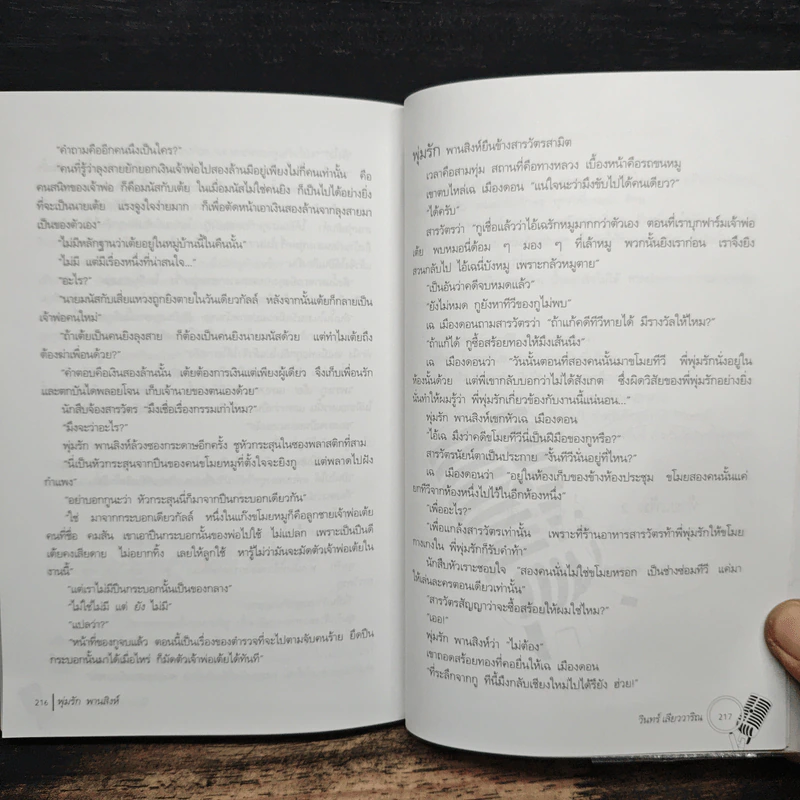 "คำถามคืออีกคนนึงเป็นใคร?"
"คนที่รู้ว่าลุงสายยักยอกเงินเจ้าพ่อไปสองล้านมีอยู่เพียงไม่กี่คนเท่านั้น คือ
คนสนิทของเจ้าพ่อ ก็คือมนัสกับเต้ย ในเมื่อมนัสไม่ใช่คนยิง ก็เป็นไปได้อย่างยิ่ง
ที่จะเป็นนายเต้ย แรงจูงใจง่ายมาก ก็เพื่อตัดหน้าเอาเงินสองล้านจากลุงสายมา
เป็นของตัวเอง"
"ไม่มีหลักฐานว่าเต้ยอยู่ในหมู่บ้านนี้ในคืนนั้น"
"ไม่มี แต่มีเรื่องหนึ่งที่น่าสนใจ..."
"อะไร?"
"นายมนัสกับเสี่ยแหวงถูกยิงตายในวันเดียวกัลล์ หลังจากนั้นเต้ยก็กลายเป็น
เจ้าพ่อคนใหม่"
"ถ้าเต้ยเป็นคนยิงลุงสาย ก็ต้องเป็นคนยิงนายมนัสด้วย แต่ทำไมเต้ยถึง
ต้องฆ่าเพื่อนด้วย?"
"คำตอบคือเงินสองล้านนั้น เต้ยต้องการเงินแต่เพียงผู้เดียว จึงเก็บเพื่อนรัก
และตกบันไดพลอยโจน เก็บเจ้านายของตนเองด้วย"
นักสืบจ้องสารวัตร "มึงเชื่อเรื่องกรรมเก่าไหม?"
"มึงจะว่าอะไร?"
พุ่มรัก พานสิงห์ล้วงซองกระดาษอีกครั้ง ชูหัวกระสุนในซองพลาสติกที่สาม
"นี่เป็นหัวกระสุนจากปืนของคนขโมยหมูที่ตั้งใจจะยิงกู แต่พลาดไปฝัง
กำแพง"
"อย่าบอกกูนะว่า หัวกระสุนนี้ก็มาจากปืนกระบอกเดียวกัน"
"ใช่ มาจากกระบอกเดียวกัลล์ หนึ่งในแก๊งขโมยหมูก็คือลูกชายเจ้าพ่อเต้ย
คนที่ชื่อ คมสัน เขาเอาปืนกระบอกนั้นของพ่อไปใช้ ไม่แปลก เพราะเป็นปืนดี
เต้ยคงเสียดาย ไม่อยากทิ้ง เลยให้ลูกใช้ หารู้ไม่ว่ามันจะมัดตัวเจ้าพ่อเต้ยใน
งานนี้"
"แต่เราไม่มีปืนกระบอกนั้นเป็นของกลาง"
"ไม่ใช่ไม่มี แต่ ยัง ไม่มี"
"แปลว่า?"
"หน้าที่ของกูจบแล้ว ตอนนี้เป็นเรื่องของตำรวจที่จะไปตามจับคนร้าย ยึดปืน
กระบอกนั้นมาได้เมื่อไหร่ ก็มัดตัวเจ้าพ่อเต้ยได้ทันที"
216 | พุ่มรัก พานสิงห์
พุ่มรัก พานสิงห์ยืนข้างสารวัตรสามิต
เวลาคือสามทุ่ม สถานที่คือทางหลวง เบื้องหน้าคือรถขนหมู
เขาตบไหล่เฉ เมืองตอน "แน่ใจนะว่ามึงขับไปได้คนเดียว?"
"ได้ครับ"
สารวัตรว่า "กูเชื่อแล้วว่าไอ้เฉรักหมูมากกว่าตัวเอง ตอนที่เราบุกฟาร์มเจ้าพ่อ
เต้ย พบหมอนี่ด้อม ๆ มอง ๆ ที่เล้าหมู พวกนั้นยิงเราก่อน เราจึงยิง
สวนกลับไป ไอ้เฉนี่บังหมู เพราะกลัวหมูตาย"
"เป็นอันว่าคดีจบหมดแล้ว"
"ยังไม่หมด กูยังหาทีวีของกูไม่พบ"
เฉ เมืองตอนถามสารวัตรว่า "ถ้าแก้คดีทีวีหายได้ มีรางวัลให้ไหม?"
"ถ้าแก้ได้ กูซื้อสร้อยทองให้มึงเส้นนึง"
เฉ เมืองตอนว่า "วันนั้นตอนที่สองคนนั้นมาขโมยทีวี พี่พุ่มรักนั่งอยู่ใน
ห้องนั้นด้วย แต่พี่เขากลับบอกว่าไม่ได้สังเกต ซึ่งผิดวิสัยของพี่พุ่มรักอย่างยิ่ง
นั่นทำให้ผมรู้ว่า พี่พุ่มรักเกี่ยวข้องกับงานนี้แน่นอน..."
พุ่มรัก พานสิงห์เขกหัวเฉ เมืองตอน
"ไอ้เฉ มึงว่าคดีขโมยทีวีนี่เป็นฝีมือของกูหรือ?"
สารวัตรนัยน์ตาเป็นประกาย "งั้นทีวีนั่นอยู่ที่ไหน?"
เฉ เมืองตอนว่า "อยู่ในห้องเก็บของข้างห้องประชุม ขโมยสองคนนั้นแค่
ยกทีวีจากห้องหนึ่งไปไว้ในอีกห้องหนึ่ง"
"เพื่ออะไร?"
"เพื่อแกล้งสารวัตรเท่านั้น เพราะที่ร้านอาหารสารวัตรท้าพี่พุ่มรักให้ขโมย
กางเกงใน พี่พุ่มรักก็รับคำท้า"
นักสืบหัวเราะชอบใจ "สองคนนั่นไม่ใช่ขโมยหรอก เป็นช่างซ่อมทีวี แค่มา
ให้เล่นละครตอนเดียวเท่านั้น"
"สารวัตรสัญญาว่าจะซื้อสร้อยให้ผมใช่ไหม?"
"เออ!"
พุ่มรัก พานสิงห์ว่า "ไม่ต้อง"
เขาถอดสร้อยทองที่คอยื่นให้เฉ เมืองตอน
"ที่ระลึกจากกู ทีนี้มึงกลับเชียงใหม่ไปได้รึยัง ฮ่วย!"
วินทร์ เลียววาริณ 217